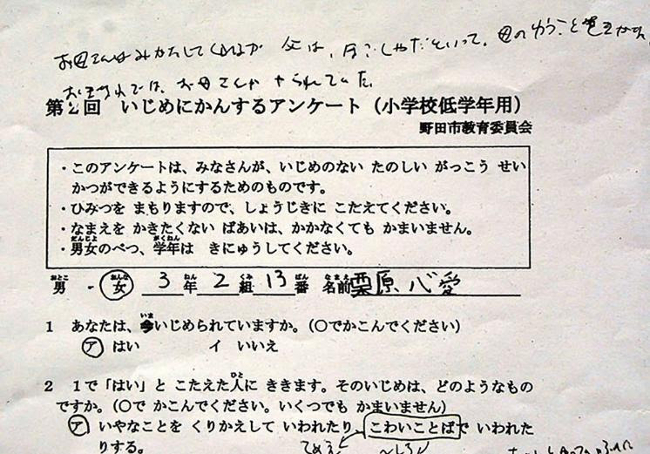 お母さんはみかたしてくれるが 父は、
おきざわでは、お母さんがやられていた
第2回 いじめにかんするアンケート（小学校低学年用）
野田市教育委員会
・このアンケートは、みなさんが、いじめのない たのしい がっこう せい
かつができるようにするためのものです。
・ひみつを まもりますので、しょうじきに こたえてください。
・なまえを かきたくない ばあいは、かかなくても かまいません。
・男女のべつ、学年は きにゅうしてください。
男 ・ 女 3年 2組 13番 名前 栗原 心愛
1 あなたは、今いじめられていますか。（○でかこんでください）
ア はい イ いいえ
2 1で「はい」と こたえた人に ききます。そのいじめは、どのようなもの
ですか。（○で かこんでください。いくつでも かまいません）
ア いやなことを くりかえして いわれたり、こわいことばで いわれた
りする。